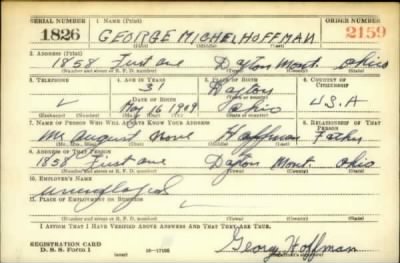 SERIAL NUMBER 1. NAME (Print) ORDER NUMBER
1826 GEORGE MICHEL HOFFMAN 2159
(First) (Middle) (Last)
2. ADDRESS (Print)
1858 First ave Dayton Mont. Ohio
(Number and street or R. F. D. number) (Town) (County) (State)
3. TELEPHONE 4. AGE IN YEARS 5. PLACE OF BIRTH 6. COUNTRY OF CITIZENSHIP
31 Dayton
DATE OF BIRTH (Town or county)
May 16 1909 Ohio U.S.A
(Exchange) (Number) (Mo.) (Day) (Yr.) (State or country)
7. NAME OF PERSON WHO WILL ALWAYS KNOW YOUR ADDRESS 8. RELATIONSHIP OF THAT PERSON
Mr August None Hoffman Father
(Mr., Mrs., Miss) (First) (Middle) (Last)
9. ADDRESS OF THAT PERSON
1858 First ave Dayton Mont. Ohio
(Number and street or R. F. D. number) (Town) (County) (State)
10. EMPLOYER'S NAME
unemployed
11. PLACE OF EMPLOYMENT OR BUSINESS
(Number and street or R. F. D. number) (Town) (County) (State)
I AFFIRM THAT I HAVE VERIFIED ABOVE ANSWERS AND THAT THEY ARE TRUE.
REGISTRATION CARD
D. S. S. Form 1 George Hoffman